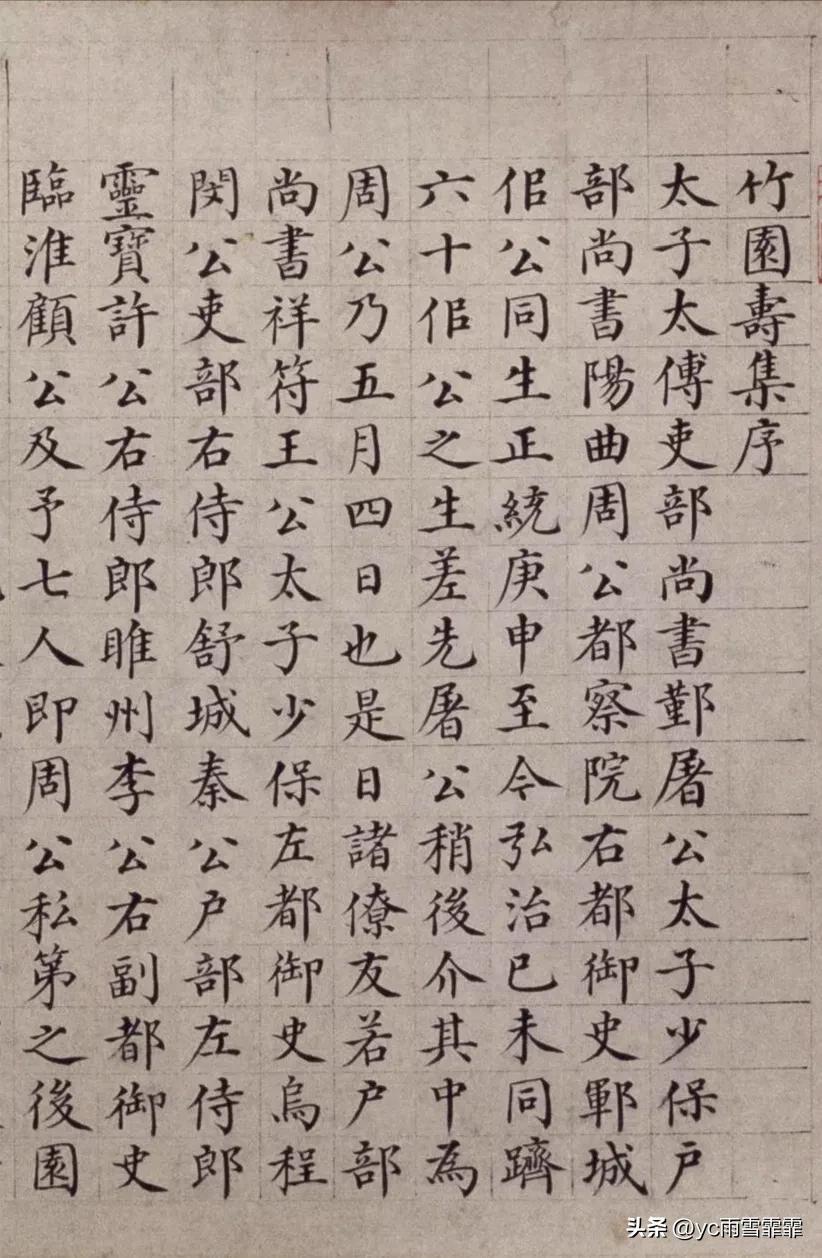 竹園壽集序
太子太傅吏部尚書鄞屠公太子少保户
部尚書陽曲周公都察院右都御史鄆城
佀公同生正統庚申至今弘治己未同躋
六十佀公之生差先屠公稍後介其中為
周公乃五月四日也是日諸僚友若户部
尚書祥符王公太子少保左都御史烏程
閔公吏部右侍郎舒城秦公户部左侍郎
靈寶許公右侍郎睢州李公右副都御史
臨淮顧公及予七人即周公私第之後園
头条 @yc雨雪霏霏